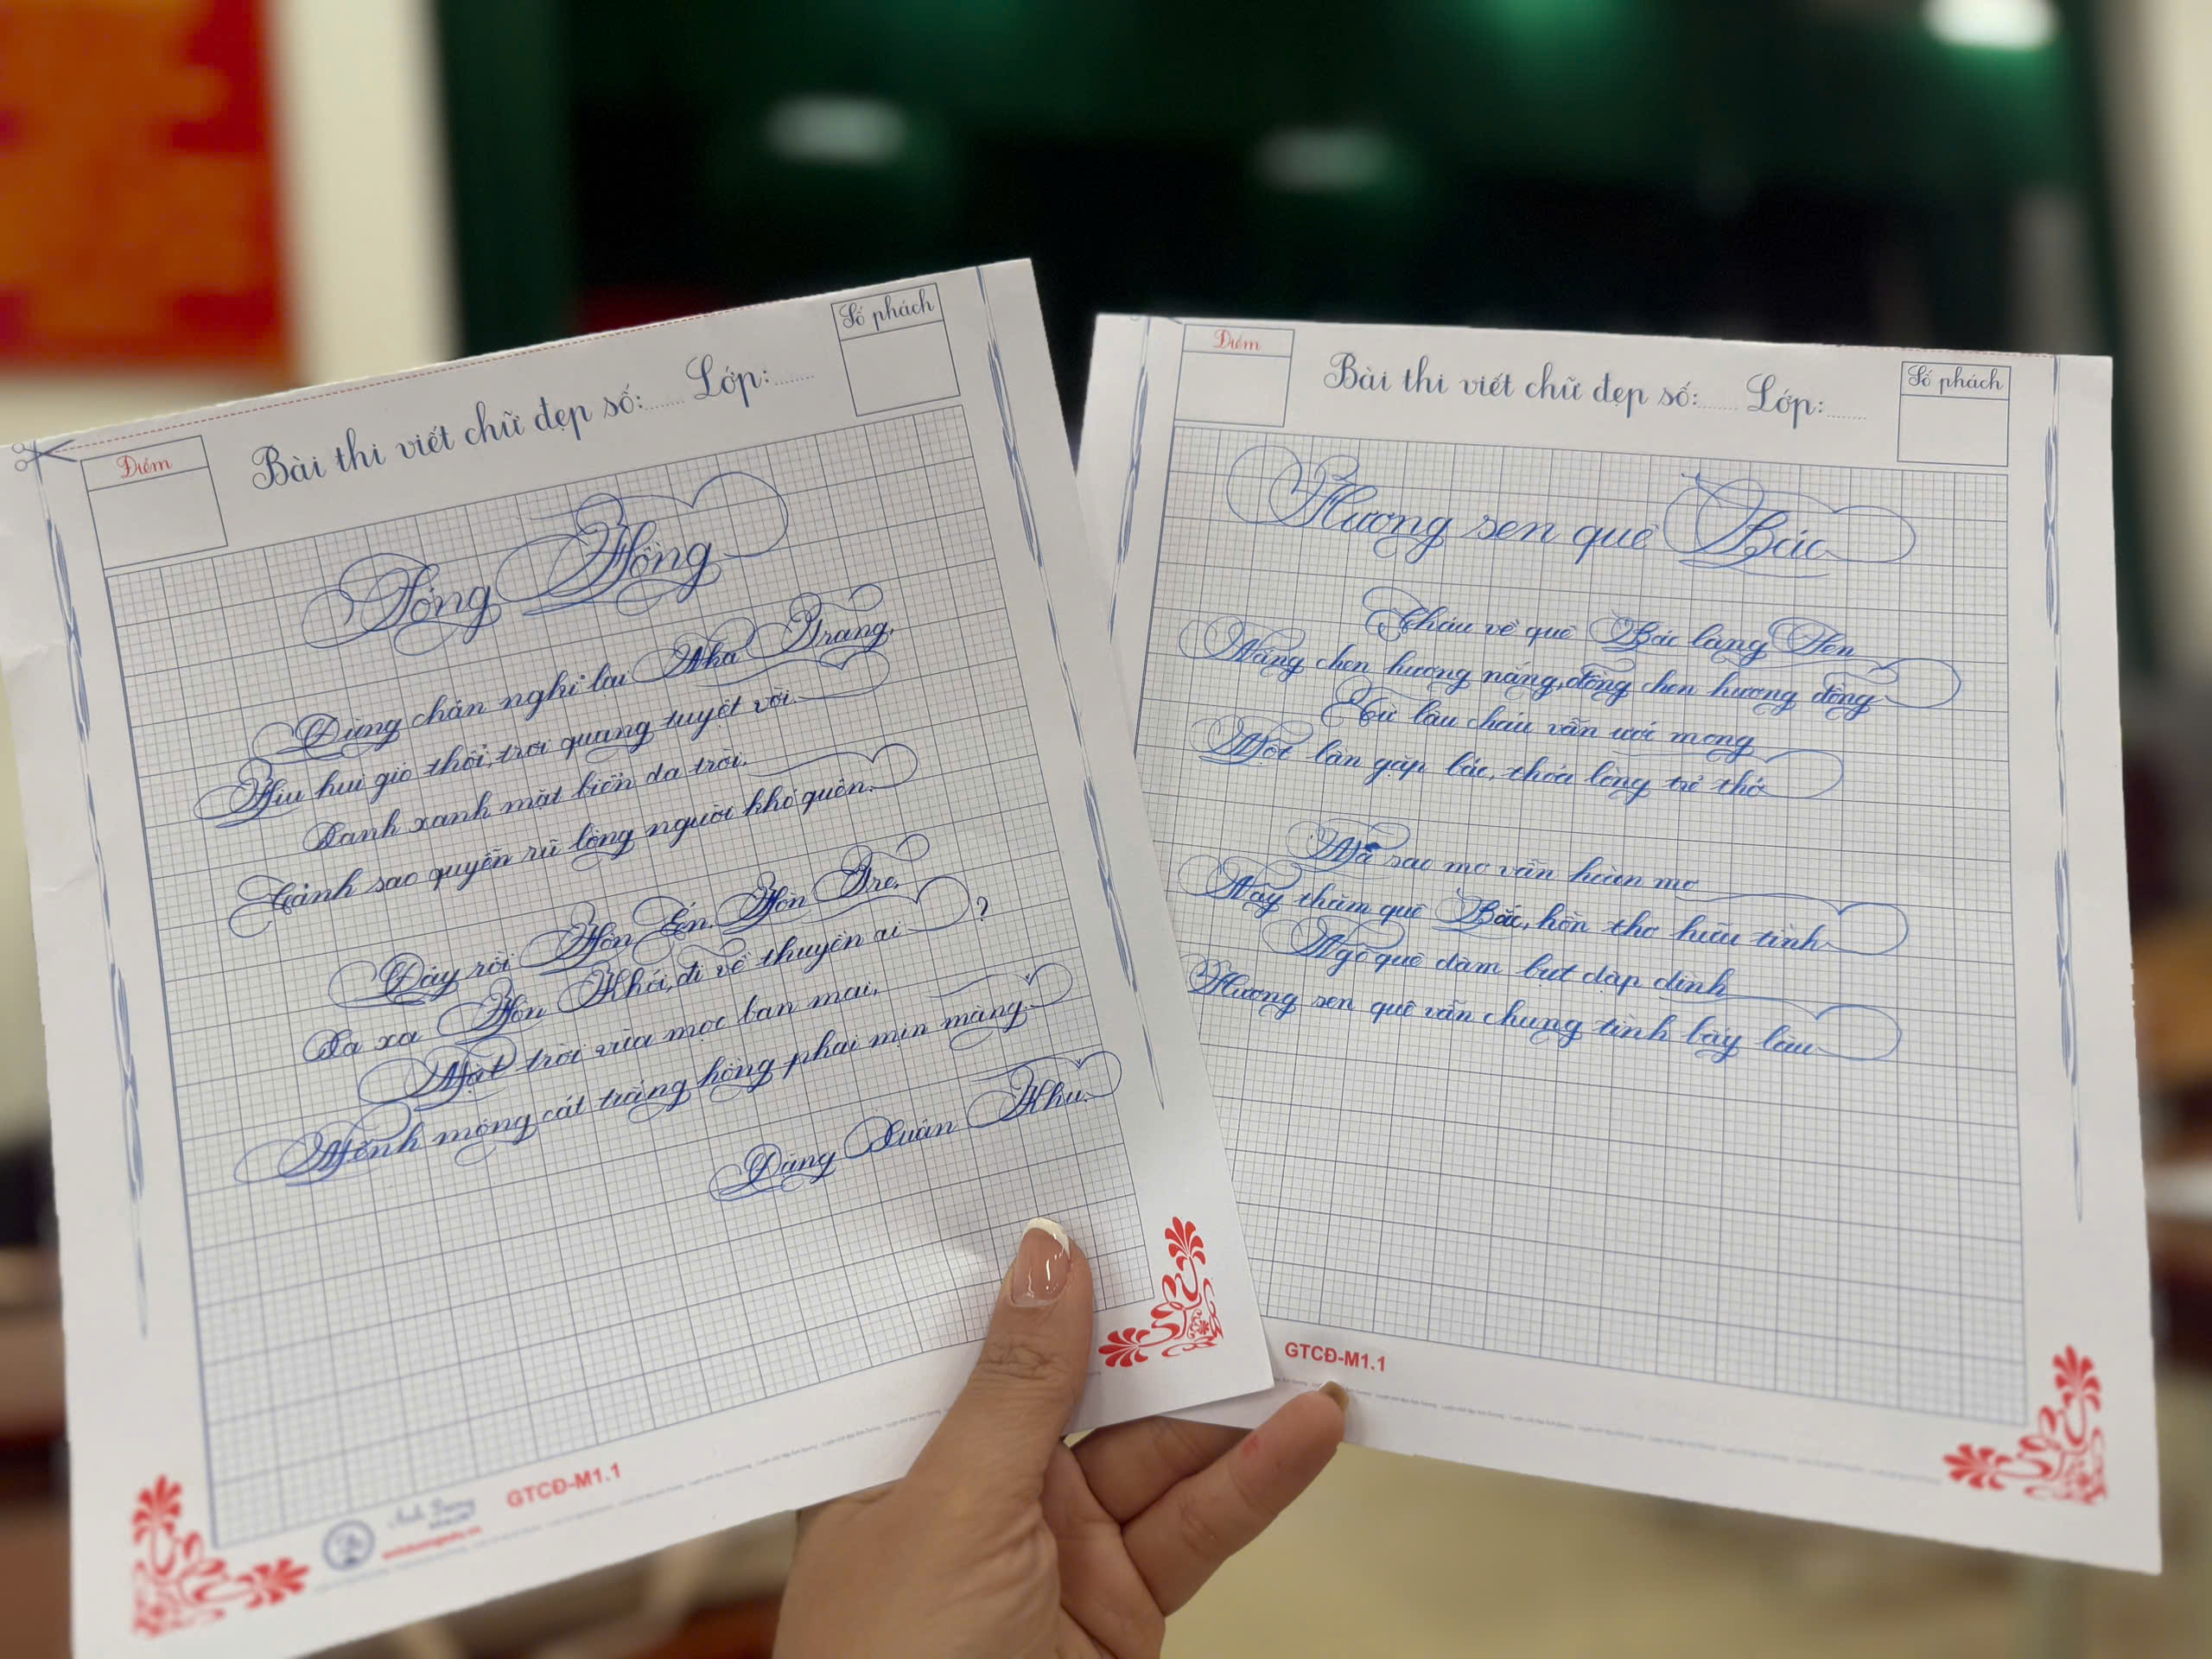 Điểm
Bài thi viết chữ đẹp số:....... Lớp:.......
Số phách
Sông Hồng
Dừng chân nghỉ lại Nha Trang,
Hiu hiu gió thổi, trời quang tuyệt vời.
Xanh xanh mặt biển da trời,
Cảnh sao quyến rũ lòng người khó quên.
Đây rồi Hòn Én, Hòn Tre,
Xa xa Hòn Khói, đi về thuyền ai?
Mặt trời vừa mọc ban mai,
Mênh mông cát trắng hồng phai mịn màng.
Đặng Xuân Khu.
GTCĐ-M1.1
Điểm
Bài thi viết chữ đẹp số:....... Lớp:.......
Số phách
Hương sen quê Bác
Cháu về quê Bác làng Sen
Nắng chen hương nắng, đồng chen hương đồng
Từ lâu cháu vẫn ước mong
Một lần gặp bác, thỏa lòng trẻ thơ
Mà sao mơ vẫn hoàn mơ
Nay thăm quê Bác, hồn thơ hữu tình
Ngõ quê dâm bụt dập dình
Hương sen quê vẫn chung tình bấy lâu
GTCĐ-M1.1